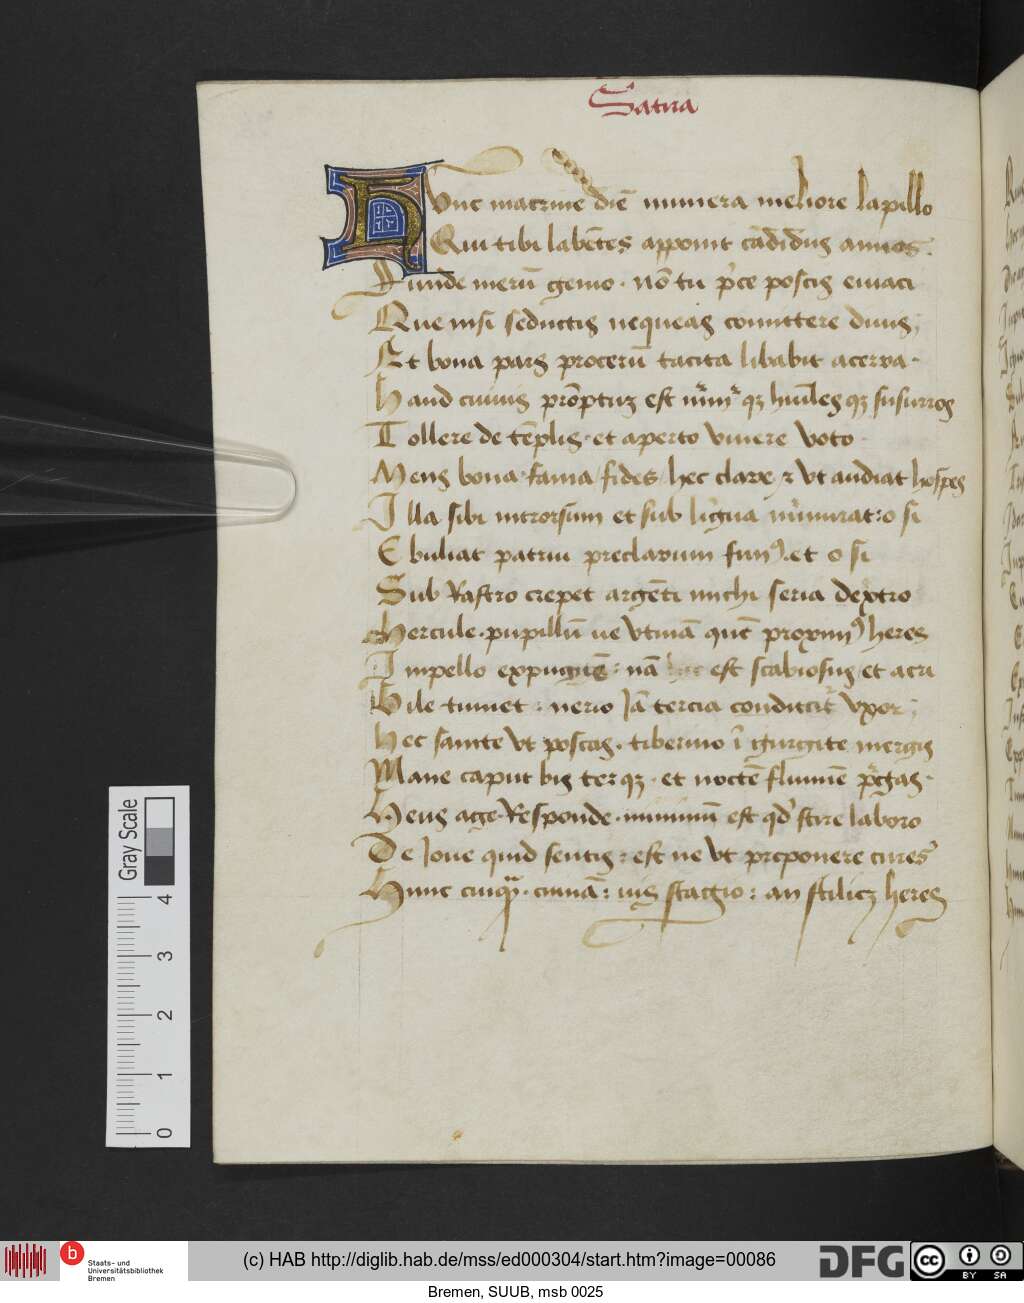 Satira
HVnc macrine diē numera meliore lapillo
Qui tibi labētes apponit cādidus annos.
Funde merū genio · nō tu p̄ce poscis emaci
Que nisi seductis nequeas conuittere diuis;
At bona pars procerū tacita libabit acerra ·
Haud cuiuis prōptuz est murmurqꝫ humilesqꝫ susurros
Tollere de tēplis · et aperto viuere voto ·
Mens bona · fama / fides / hec clare ⁊ vt audiat hospes
Illa sibi introrsum et sub līgua īmurmurat: o si
Ebuliat patrui preclarum funꝰ. et o si
Sub Rastro crepet argēti michi seria dextro
Hercule · pupillū ne vtinā quē proximꝰ heres
Impello expungē: nā est scabiosus et acri
Bile tumet · nerio Iā tercia conducitr̄ vxor;
Hec sancte vt poscas · tiberino ī gurgite mergis
Mane caput bis terqꝫ · et noctē flumīe p̄gas ·
Heus age · Responde · minimū est qd̓ scire laboro
De Ioue quid sentis: est ne vt preponere cures
Hunc cuiquā · cuinā: uis stagio: an scilicꝫ heres
Gray Scale
4
3
2
1
0
b
Staats- und
Universitätsbibliothek
Bremen
(c) HAB http://diglib.hab.de/mss/ed000304/start.htm?image=00086
DFG
cc
BY SA
Bremen, SUUB, msb 0025